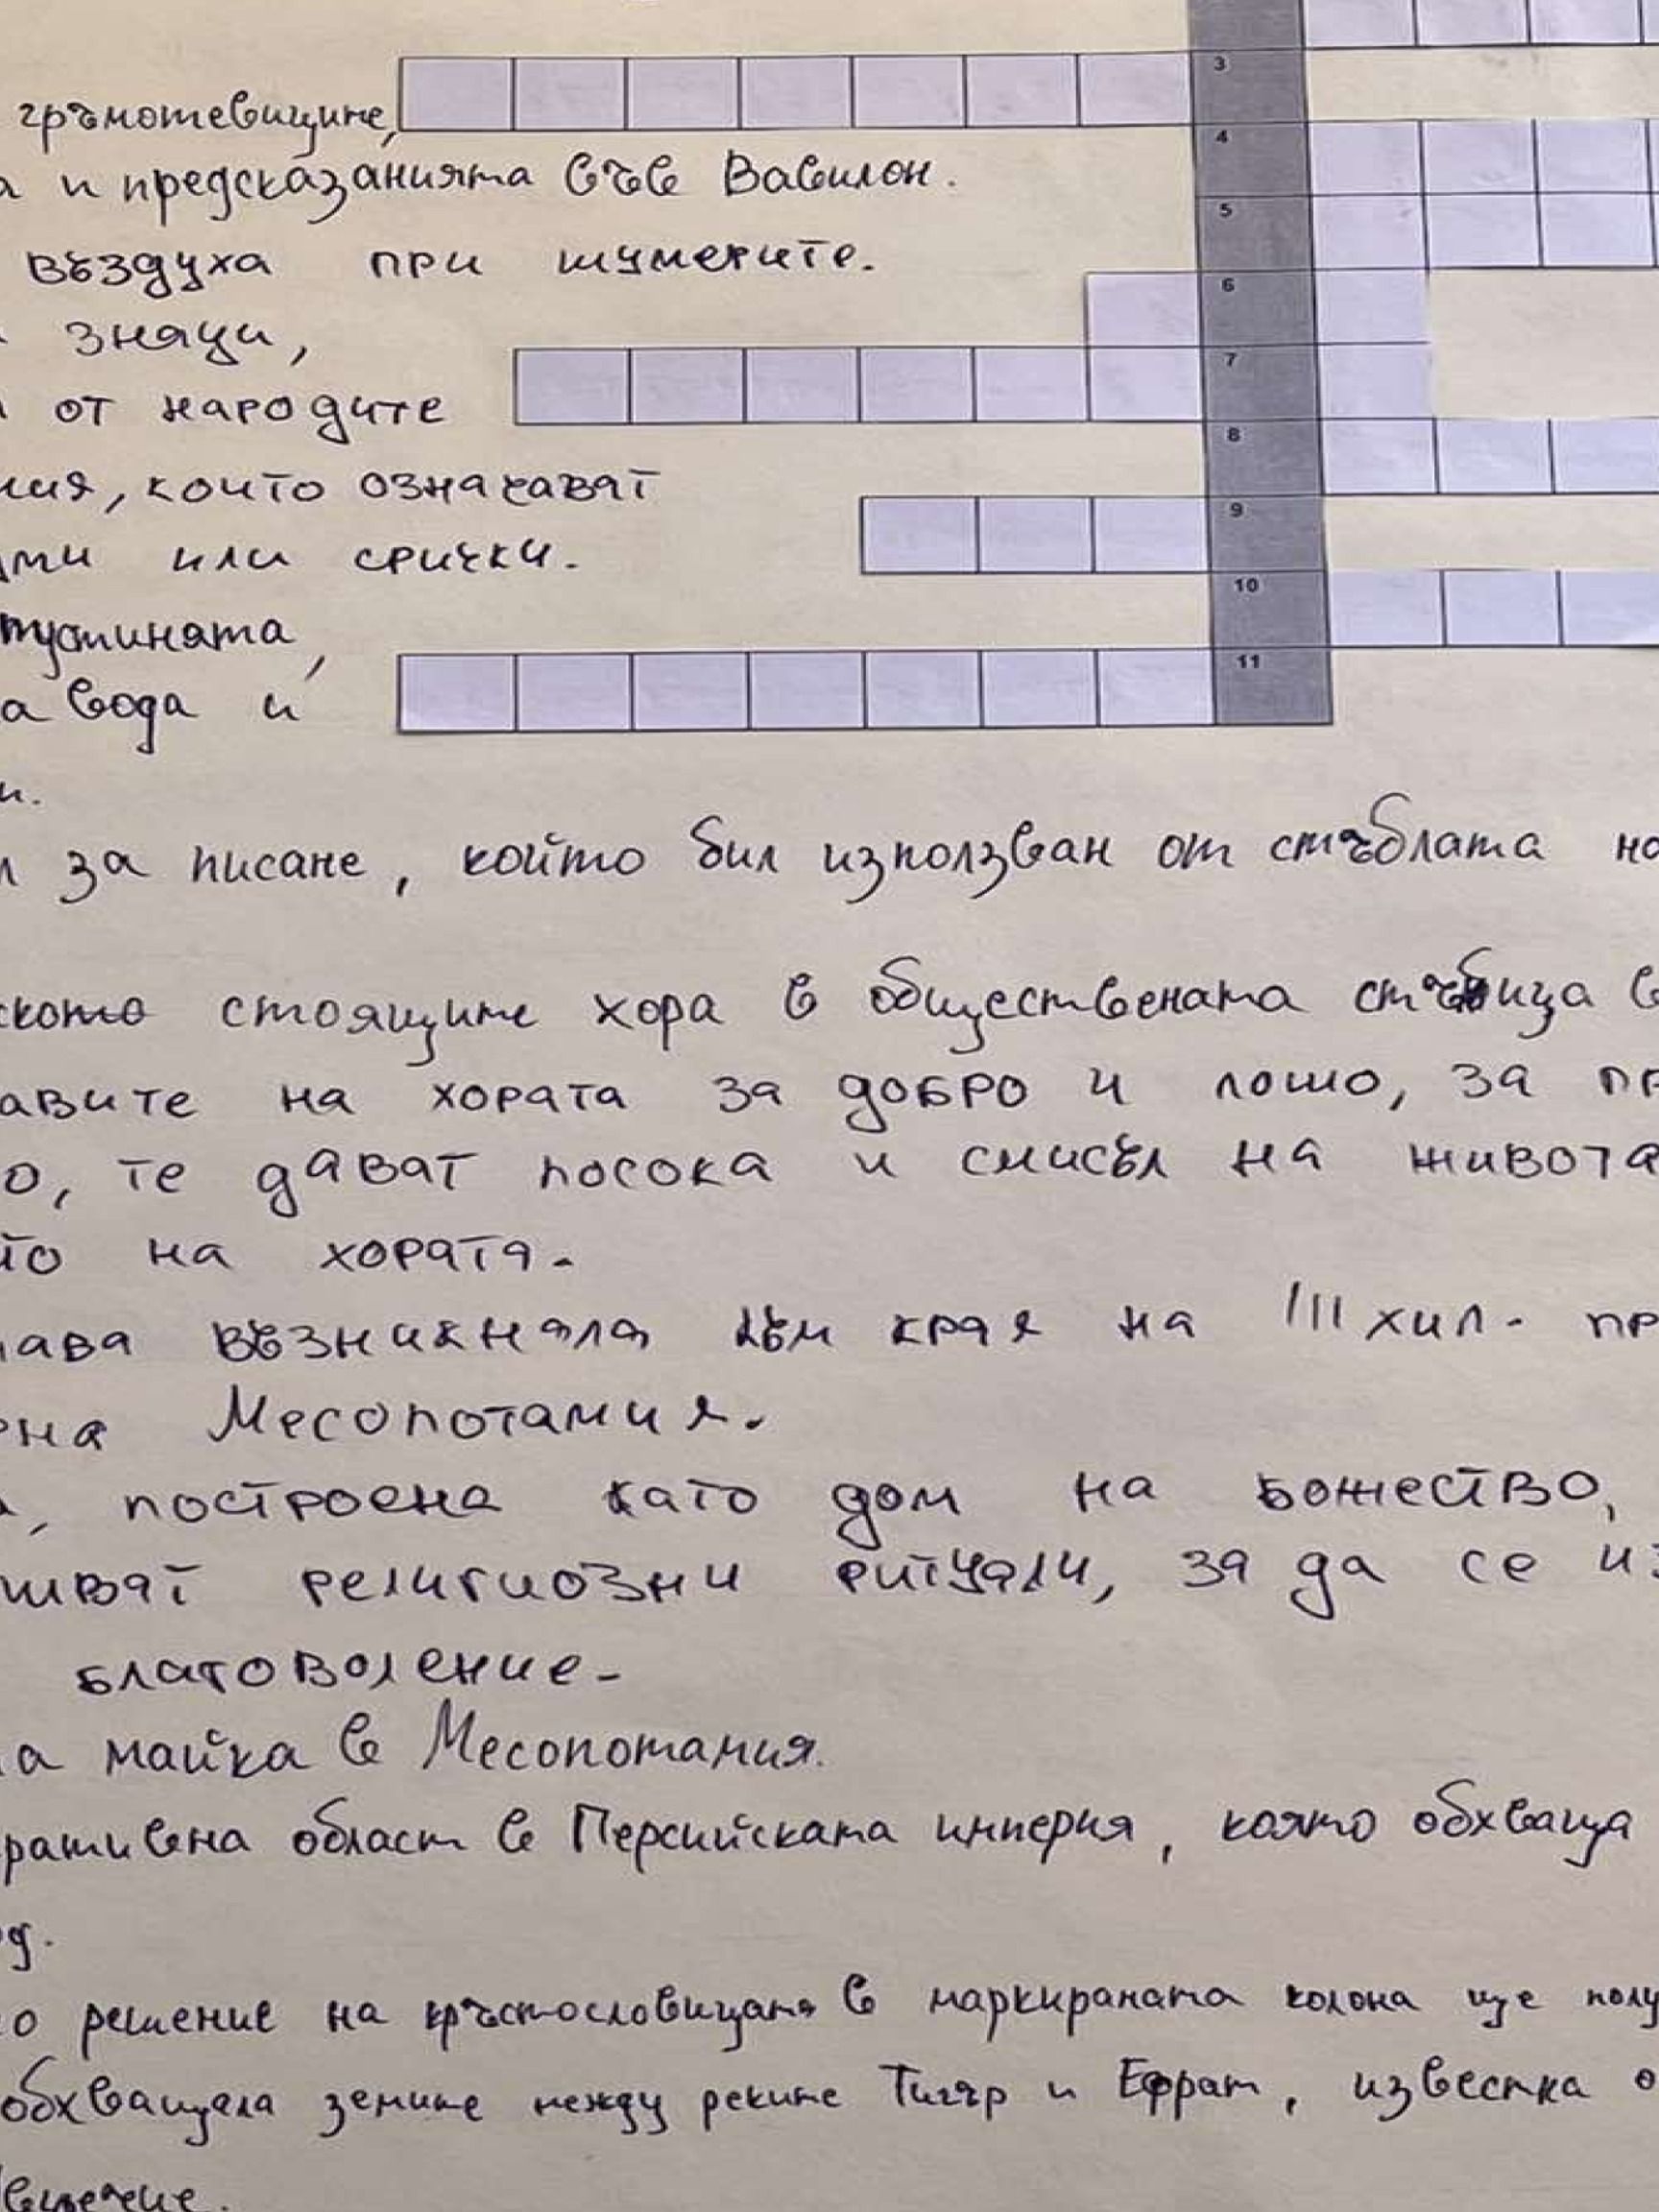 3
гръмотевиците,
4
и предсказанията във Вавилон.
5
въздуха при шумерите.
6
знаци,
7
от народите
8
които означават
9
или срички.
10
пустинята,
11
вода и
за писане, който бил използван от стъблата
стоящите хора в обществената стълбица в
на хората за добро и лошо, за
те дават посока и смисъл на живота
на хората.
възникнала към края на III хил.
Месопотамия.
построена като дом на божество,
религиозни ритуали, за да се
благоволение.
майка в Месопотамия.
област в Персийската империя, която обхваща
решение на кръстословицата в маркираната колона ще
обхващала земите между реките Тигър и Ефрат, известна